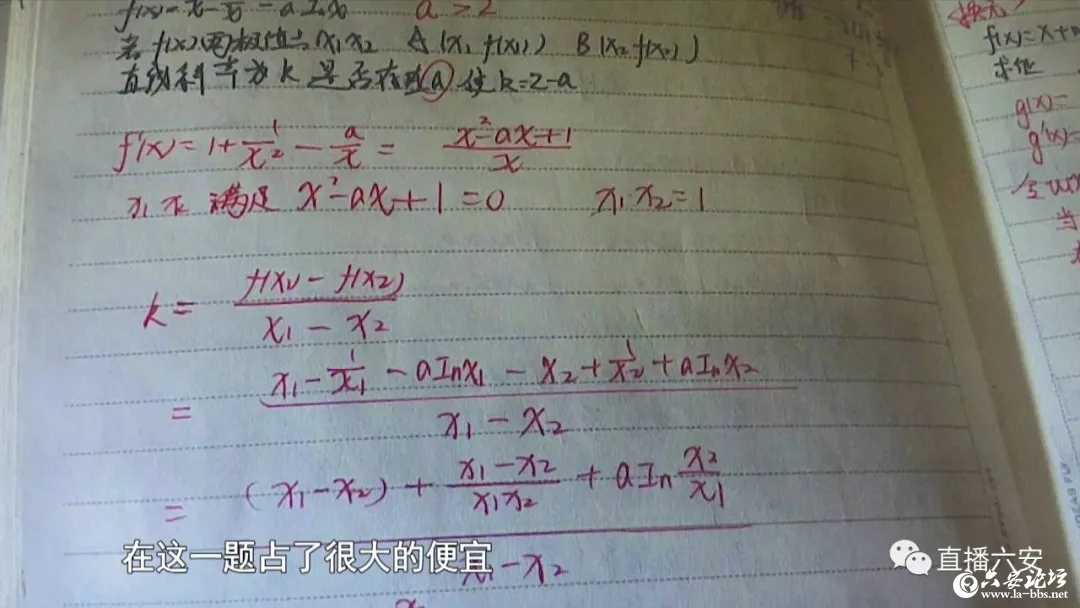 f(x)=x-\frac{1}{x}-a ln x   a>2
若 f(x)两极值点 x₁ x₂ A(x₁ f(x₁)) B(x₂ f(x₂))
直线斜率为 k 是否存在 a 使 k=2-a
f'(x)=1+\frac{1}{x^2}-\frac{a}{x}= \frac{x^2-ax+1}{x}
x₁ x₂ 满足 x²-ax+1=0   x₁·x₂=1
k= \frac{f(x₁)-f(x₂)}{x₁-x₂}
= \frac{x₁-\frac{1}{x₁}-a ln x₁-x₂+\frac{1}{x₂}+a ln x₂}{x₁-x₂}
= \frac{(x₁-x₂)+\frac{x₁-x₂}{x₁x₂}+a ln \frac{x₂}{x₁}}{x₁-x₂}
<换元>
f(x)=x+
求证
g(x)=
g'(x)=
当
在这一题占了很大的便宜
直播六安
六安论坛
www.la-bbs.net